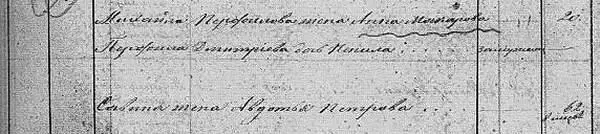 Михайла Перфилова жена Анна Макарова 20.
Перфила Дмитриева дочь замужем
Савина жена Авдотья Петрова . . 62